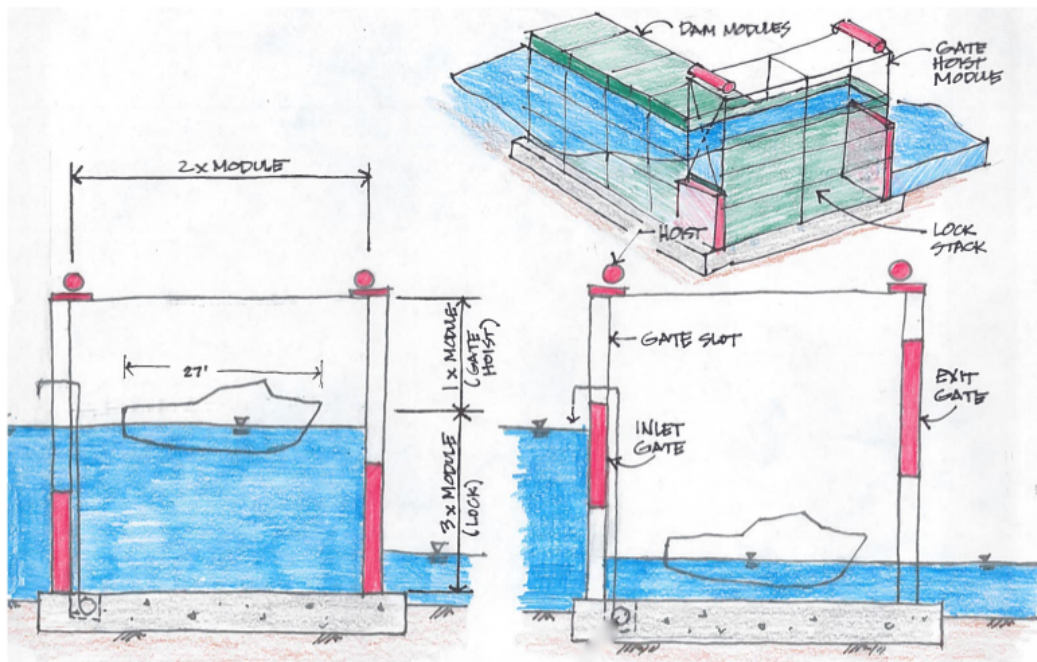 DAM MODULES
GATE
HOIST
MODULE
2 x MODULE
HOIST
LOCK
STACK
27'
1 x MODULE
(GATE
HOIST)
3 x MODULE
(LOCK)
GATE SLOT
INLET
GATE
EXIT
GATE